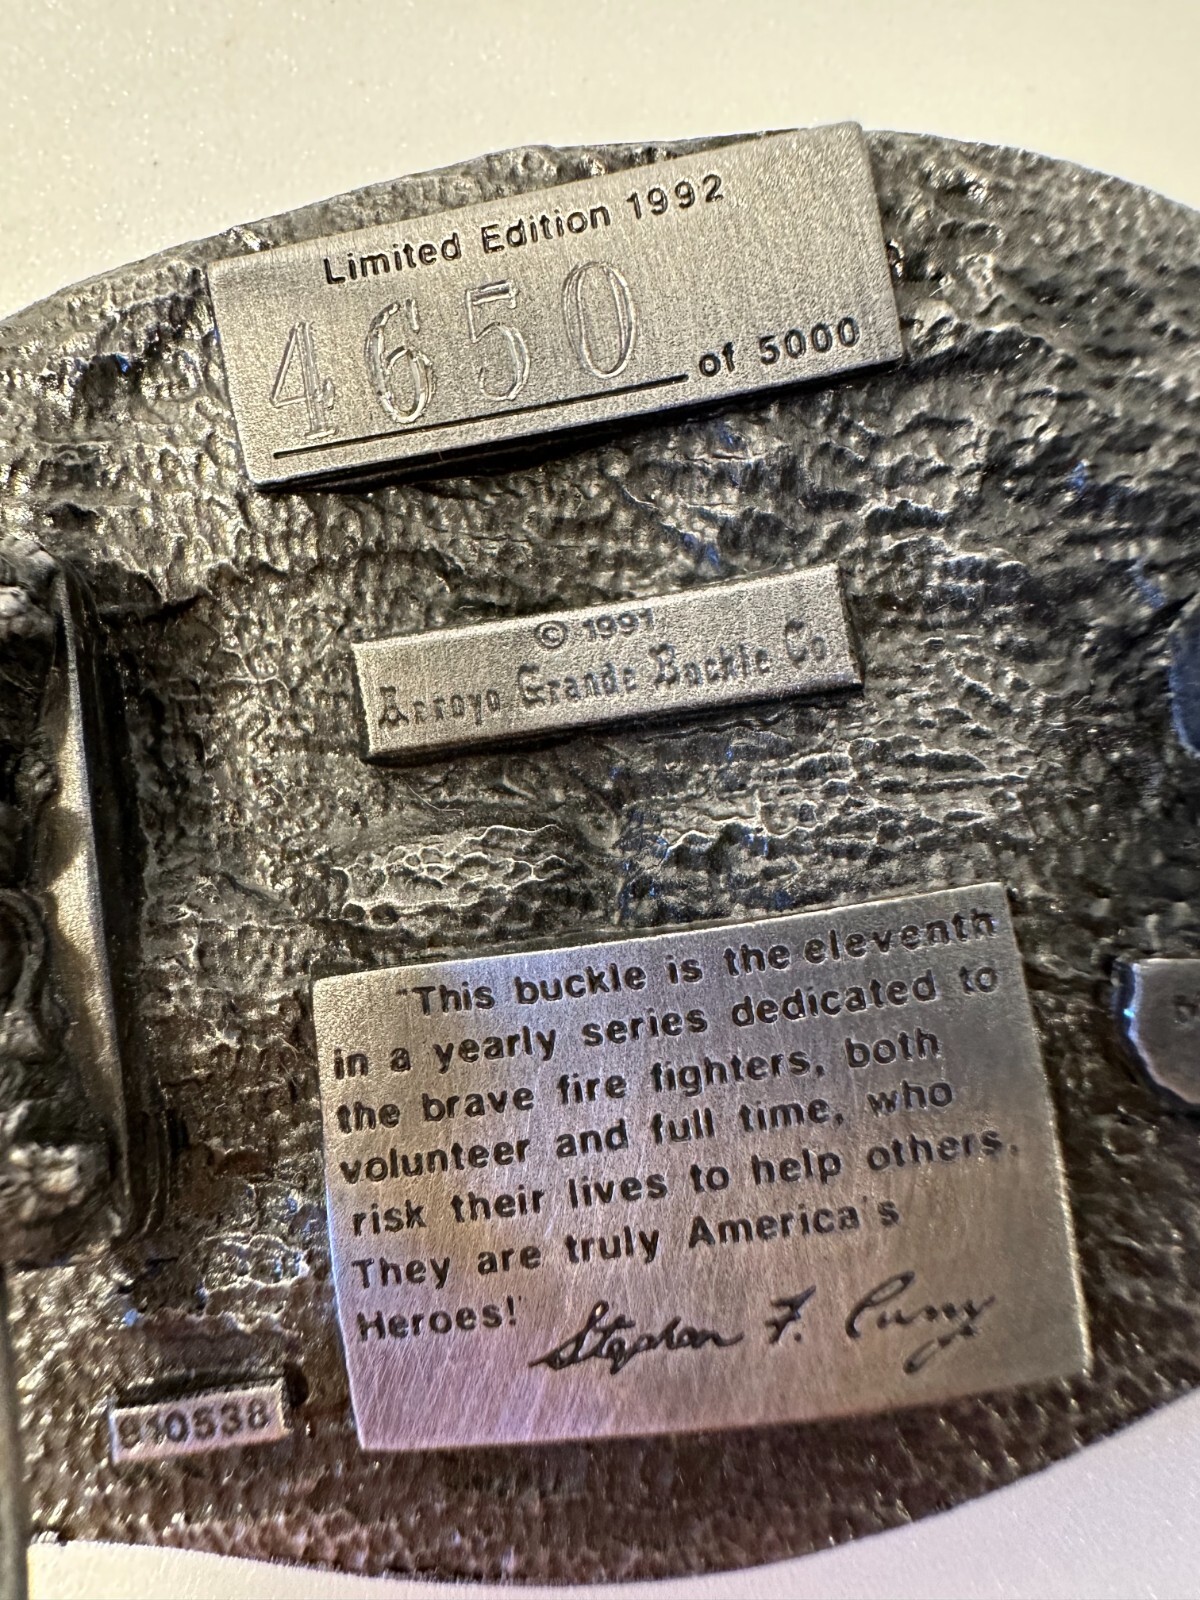 Limited Edition 1992
4650 of 5000
© 1991
Arroyo Grande Buckle Co
"This buckle is the eleventh
in a yearly series dedicated to
the brave fire fighters, both
volunteer and full time, who
risk their lives to help others.
They are truly America's
Heroes!"
Stephen F.
910538